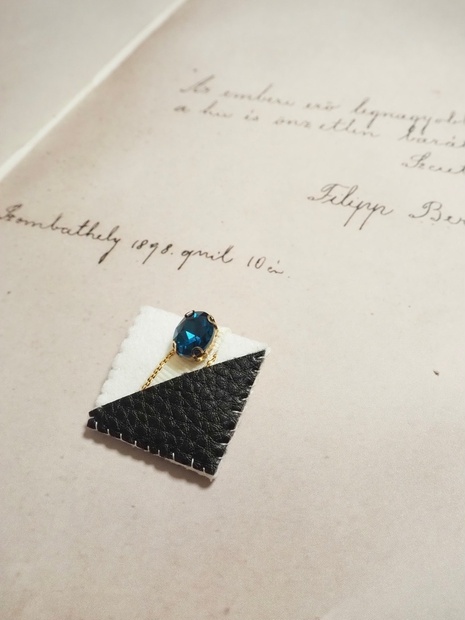 Az emberi erő legnagyobb
a hű is önzetlen bará
Filipp Ber
Szombathely 1898. april 10 én.